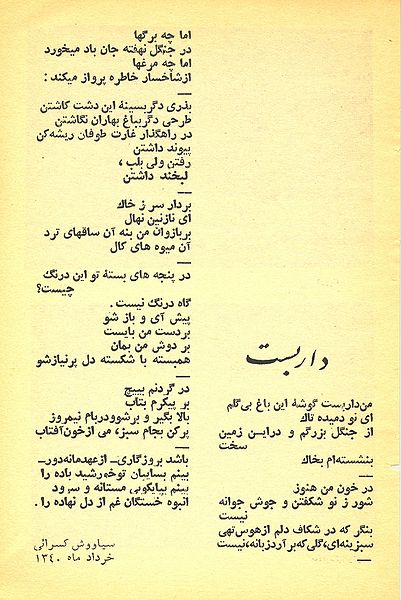 داربست
من‌داربست گوشهٔ این باغ بی‌گلم
ای نو دمیده تاك
از جنگل بزرگم و دراین زمین
سخت
بنشسته‌ام بخاك
در خون من هنوز
شور ز نو شکفتن و جوش جوانه
نیست
بنگر که در شکاف دلم ازهوس‌تهی
سبزینه‌ای، گلی‌که‌برآردزبانه، نیست
اما چه برگها
در جنگل نهفته جان باد میخورد
اما چه مرغها
ازشاخسار خاطره پرواز میکند:
بذری دگربسینهٔ این دشت کاشتن
طرحی دگربباغ بهاران نگاشتن
در راهگذار غارت طوفان ریشه‌کن
پیوند داشتن
رفتن ولی بلب،
لبخند داشتن
بردار سر ز خاك
ای نازنین نهال
بربازوان من بنه آن ساقهای ترد
آن میوه های کال
در پنجه های بستهٔ تو این درنگ
چیست؟
گاه درنگ نیست.
پیش آی و باز شو
بردست من بایست
بر دوش من بمان
همبسته با شکسته دل پرنیازشو
در گردنم بپیچ
بر پیکرم بتاب
بالا بگیر و برشوودربام نیمروز
پرکن بجام سبز، می ازخون‌آفتاب
باشد بروزگاری_ ازعهدمانه‌دور_
بینم بسایبان توخم‌رشید باده را
بینم بپایکوبی مستانه و سرود
انبوه خستگان غم از دل نهاده را.
سیاووش کسرائی
خرداد ماه ۱۳۴۰